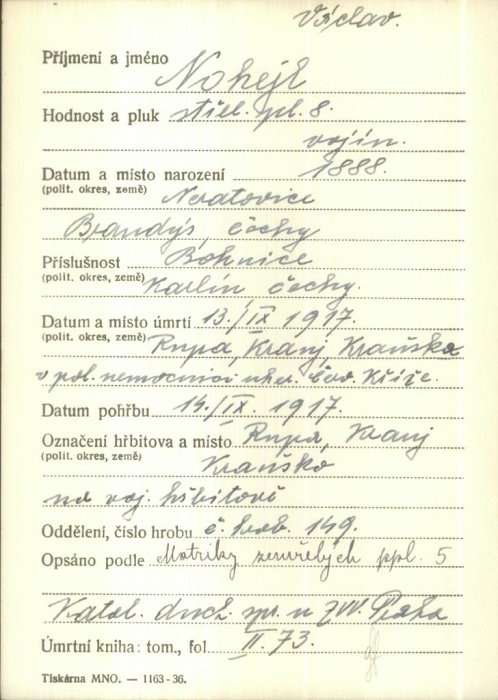 Václav.
Příjmení a jméno Nohejl
Hodnost a pluk střel. pl. 8.
vojín.
Datum a místo narození 1888.
(polit. okres, země) Neratovice
Brandýs, čechy
Příslušnost Bohnice
(polit. okres, země) Karlín čechy.
Datum a místo úmrtí 13./IX 1917.
(polit. okres, země) Rupa, Kranj, Kraňsko
v pol. nemocnici uher. červ. Kříže.
Datum pohřbu 14./IX. 1917.
Označení hřbitova a místo Rupa, Kranj
(polit. okres, země) Kraňsko
na voj. hřbitově
Oddělení, číslo hrobu č. hrob. 149.
Opsáno podle Matriky zemřelých ppl. 5
Katol. duch. spr. u ZVV. Praha
Úmrtní kniha: tom., fol. II. 73.
Tiskárna MNO. — 1163-36.